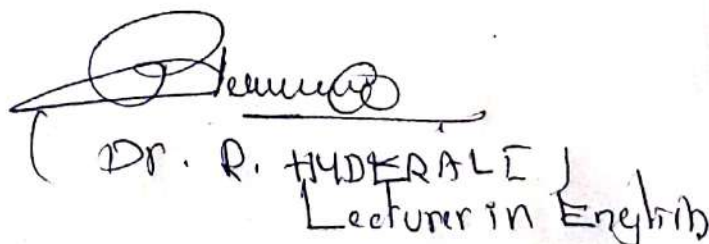 ( Dr. R. HYDERALI )
Lecturer in English